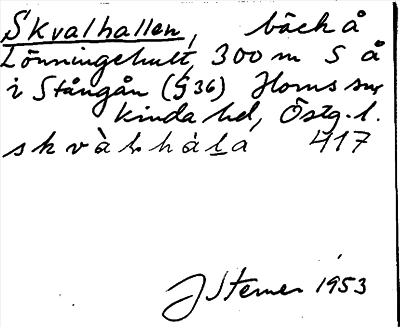 Skvalhallen, bäck å
Lönningehult, 300 m S å
i Stångån (§ 36) Horns sn,
Kinda hd, Östg. l.
skvàl.hàla 417
J Sterner 1953